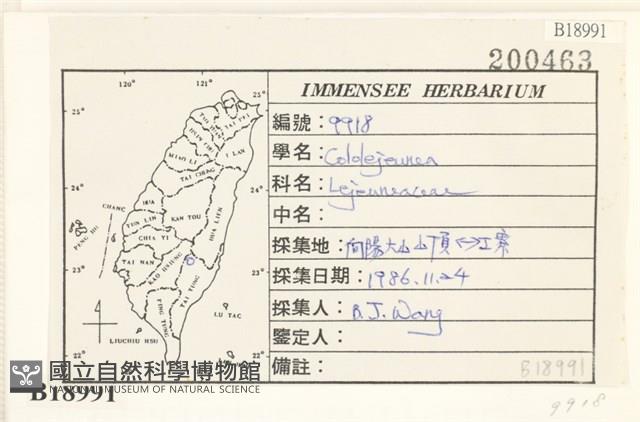 B18991
200463
IMMENSEE HERBARIUM
編號：9918
學名：Cololejeunea
科名：Lejeuneaceae
中名：
採集地：向陽大山山頂↔工寮
採集日期：1986.11.24
採集人：B.J. Wang
鑒定人：
備註：B18991
120° 121°
25° 25°
TAI PEI
I LAN
MIAO LI
TAI CHUNG
24° 24°
CHANG HUA
KAN TOU
HUA LIEN
YUN LIN
PENG HU
CHIA YI
TAI NAN
KAO HSIUNG
TAI TUNG
23° 23°
PING TUNG
LU TAO
LIUCHIU HSU
22° 22°
國立自然科學博物館
NATIONAL MUSEUM OF NATURAL SCIENCE
B18991
9918